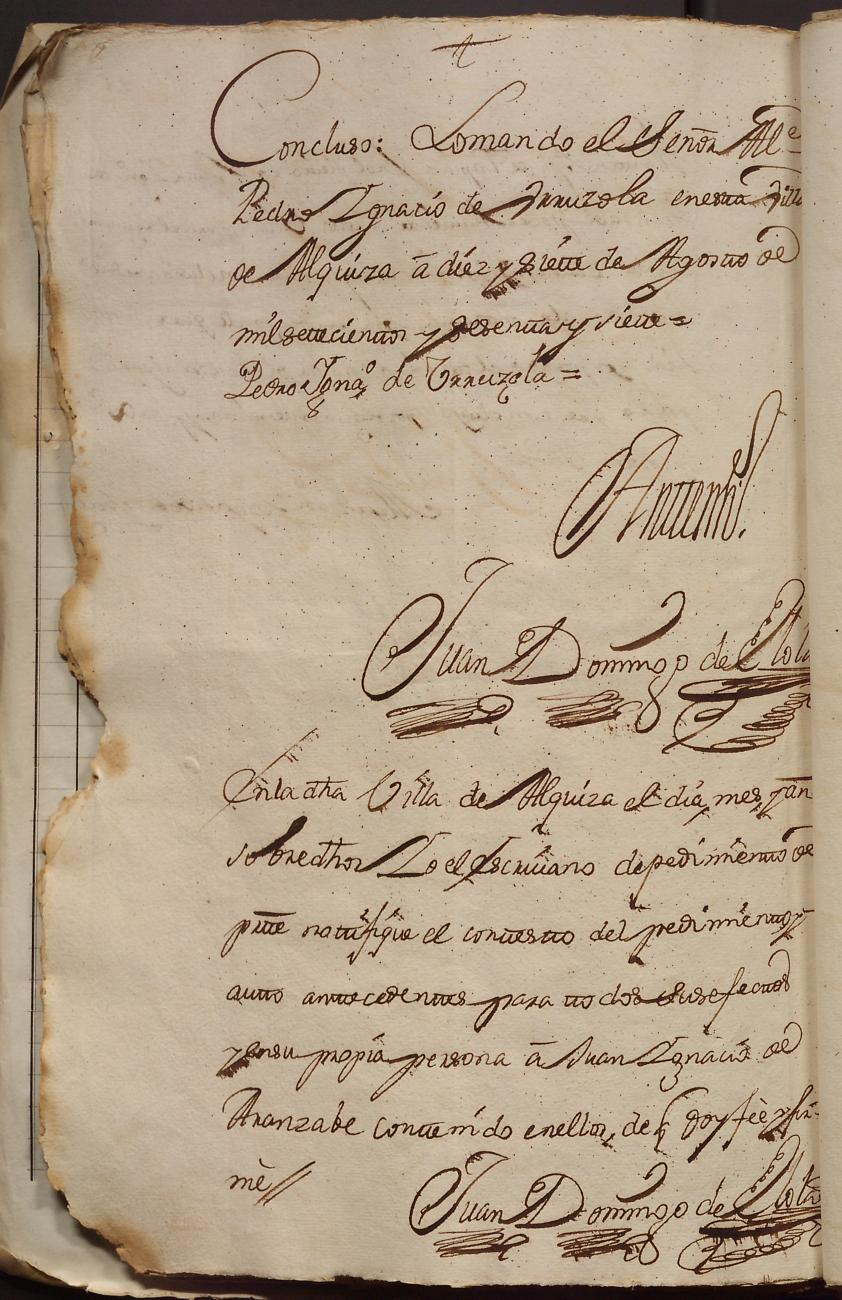 Concluso: Lomando el Señor Alc
Pedro Ygnacio de Yrruzola enesta Villa
de Alquiza â diez y siette de Agosto de
mil settecienttos y sesentta y siette =
Pedro Ygnaº de Yrruzola =
Anttemi.
Juan Domingo de
Enla dha Villa de Alquiza el dia, mes, y añ
sobredhos Yo el Escrivano depedimiento de
ptte nottifique el contestto del pedimientto y
autto anttecedenttes para ttodos susefecttos
y ensu propia persona â Juan Ygnacio de
Aranzabe conttenido enellos, de q doy feè y fir-
mè //
Juan Domingo de